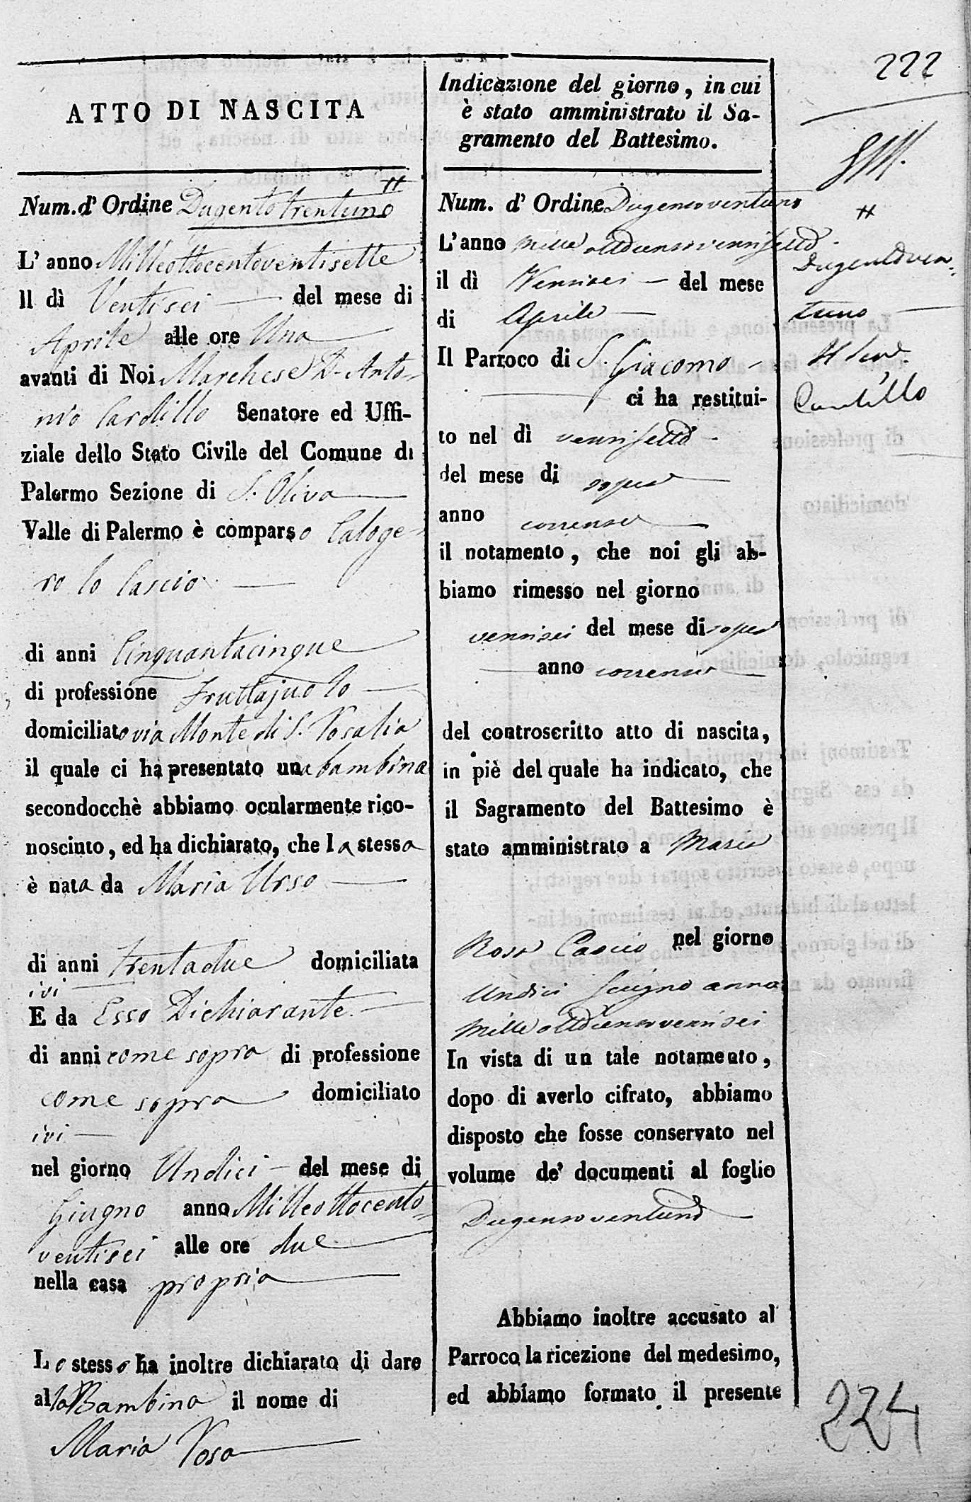 222
ATTO DI NASCITA
Num. d' Ordine Dugento trentuno #
L' anno Milleottocentoventisette
Il dì Ventisei del mese di
Aprile alle ore Una
avanti di Noi Marchese D. Anto-
nio Cardillo Senatore ed Uffi-
ziale dello Stato Civile del Comune di
Palermo Sezione di S. Oliva
Valle di Palermo è comparso Caloge-
ro lo Cascio
di anni Cinquantacinque
di professione Fruttajuolo
domiciliato via Monte di S. Rosalia
il quale ci ha presentato una bambina
secondocchè abbiamo ocularmente rico-
nosciuto, ed ha dichiarato, che la stessa
è nata da Maria Urso
di anni trentadue domiciliata
ivi
E da Esso Dichiarante
di anni come sopra di professione
come sopra domiciliato
ivi
nel giorno Undici del mese di
Giugno anno Milleottocento-
ventisei alle ore due
nella casa propria
Lo stesso ha inoltre dichiarato di dare
alla Bambina il nome di
Maria Rosa
Indicazione del giorno, in cui
è stato amministrato il Sa-
gramento del Battesimo.
Num. d' Ordine Dugentoventuno
L' anno mille ottocentoventisette
il dì Ventisei del mese
di Aprile
Il Parroco di S. Giacomo
ci ha restitui-
to nel dì ventisette
del mese di sopra
anno corrente
il notamento, che noi gli ab-
biamo rimesso nel giorno
ventisei del mese di sopra
anno corrente
del controscritto atto di nascita,
in piè del quale ha indicato, che
il Sagramento del Battesimo è
stato amministrato a Maria
Rosa Cascio nel giorno
Undici Giugno anno
mille ottocentoventisei
In vista di un tale notamento,
dopo di averlo cifrato, abbiamo
disposto che fosse conservato nel
volume de' documenti al foglio
Dugentoventuno
Abbiamo inoltre accusato al
Parroco la ricezione del medesimo,
ed abbiamo formato il presente
#
Dugentoven-
tuno
Il Sen.
Cardillo
224